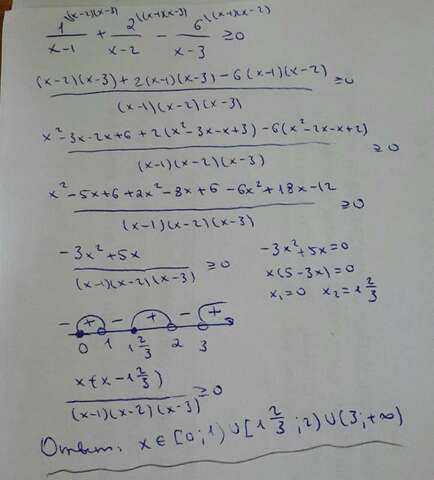 1^{\(x-2)(x-3)}/(x-1) + 2^{\(x-1)(x-3)}/(x-2) - 6^{\(x-1)(x-2)}/(x-3) ≥ 0
((x-2)(x-3) + 2(x-1)(x-3) - 6(x-1)(x-2))/((x-1)(x-2)(x-3)) ≥ 0
(x² - 3x - 2x + 6 + 2(x² - 3x - x + 3) - 6(x² - 2x - x + 2))/((x-1)(x-2)(x-3)) ≥ 0
(x² - 5x + 6 + 2x² - 8x + 6 - 6x² + 18x - 12)/((x-1)(x-2)(x-3)) ≥ 0
(-3x² + 5x)/((x-1)(x-2)(x-3)) ≥ 0
-3x² + 5x = 0
x(5 - 3x) = 0
x₁ = 0 x₂ = 1 2/3
- + - + - +
0 1 1 2/3 2 3
x(x - 1 2/3)/((x-1)(x-2)(x-3)) ≥ 0
Ответ: x ∈ [0; 1) ∪ [1 2/3; 2) ∪ (3; +∞)